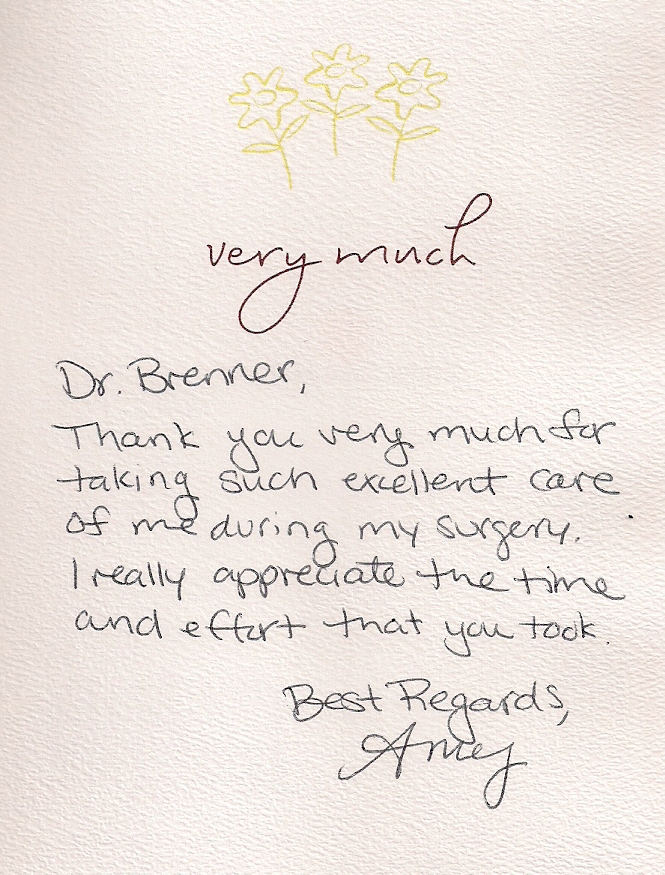 very much
Dr. Brenner,
Thank you very much for
taking such excellent care
of me during my surgery.
I really appreciate the time
and effort that you took.
Best Regards,
Amy